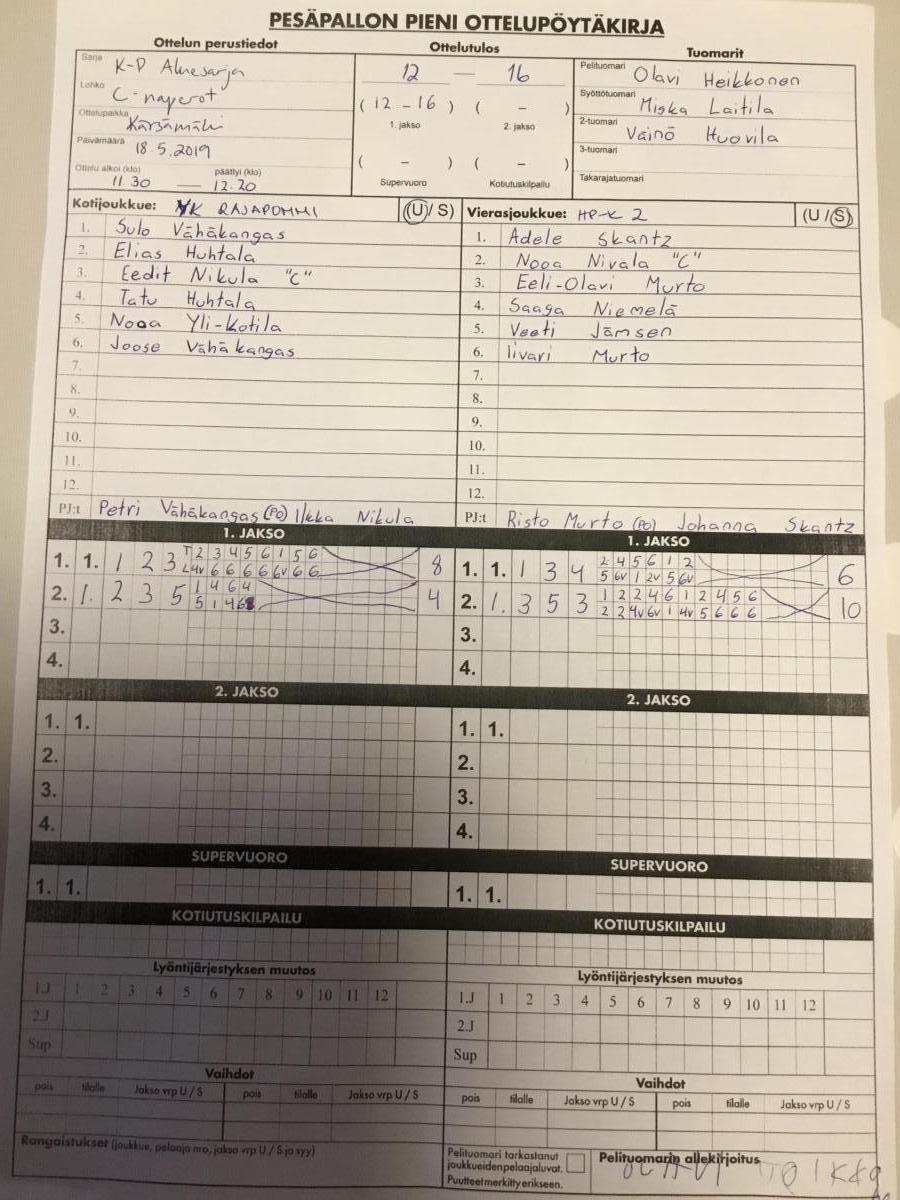 PESÄPALLON PIENI OTTELUPÖYTÄKIRJA
Ottelun perustiedot
Sarja K-P Aluesarja
Lohko C-naperot
Ottelupaikka Kärsämäki
Päivämäärä 18.5.2019
Ottelu alkoi (klo) päättyi (klo)
11.30 — 12.20
Ottelutulos
12 — 16
( 12 - 16 ) ( - )
1. jakso 2. jakso
( - ) ( - )
Supervuoro Kotiutuskilpailu
Tuomarit
Pelituomari Olavi Heikkonen
Syöttötuomari Miska Laitila
2-tuomari Väinö Huovila
3-tuomari
Takarajatuomari
Kotijoukkue: YK RAJAPOMMI (U/S)
1. Sulo Vähäkangas
2. Elias Huhtala
3. Eedit Nikula "C"
4. Tatu Huhtala
5. Nooa Yli-Kotila
6. Joose Vähäkangas
7.
8.
9.
10.
11.
12.
PJ:t Petri Vähäkangas (PO) Ilkka Nikula
Vierasjoukkue: HP-K 2 (U/S)
1. Adele Skantz
2. Nooa Nivala "C"
3. Eeli-Olavi Murto
4. Saaga Niemelä
5. Veeti Jämsen
6. Iivari Murto
7.
8.
9.
10.
11.
12.
PJ:t Risto Murto (PO) Johanna Skantz
1. JAKSO
1. 1. 1 2 3 2 3 4 5 6 1 5 6 8
6 6 6 6 6v 6 6
2. 1. 2 3 5 1 4 6 4 4
5 1 4 6
3.
4.
1. JAKSO
1. 1. 1 3 4 2 4 5 6 1 2 6
5 6v 1 2v 5 6v
2. 1. 3 5 3 1 2 2 4 6 1 2 4 5 6 10
2 2 4v 6v 1 4v 5 6 6 6
3.
4.
2. JAKSO
1. 1.
2.
3.
4.
2. JAKSO
1. 1.
2.
3.
4.
SUPERVUORO
1. 1.
SUPERVUORO
1. 1.
KOTIUTUSKILPAILU
KOTIUTUSKILPAILU
Lyöntijärjestyksen muutos
1.J 1 2 3 4 5 6 7 8 9 10 11 12
2.J
Sup
Lyöntijärjestyksen muutos
1.J 1 2 3 4 5 6 7 8 9 10 11 12
2.J
Sup
Vaihdot
pois tilalle Jakso vrp U / S pois tilalle Jakso vrp U / S
Vaihdot
pois tilalle Jakso vrp U / S pois tilalle Jakso vrp U / S
Rangaistukset (joukkue, pelaaja nro, jakso vrp U / S ja syy)
Pelituomari tarkastanut
joukkueidenpelaajaluvat.
Puutteet merkitty erikseen.
Pelituomarin allekirjoitus